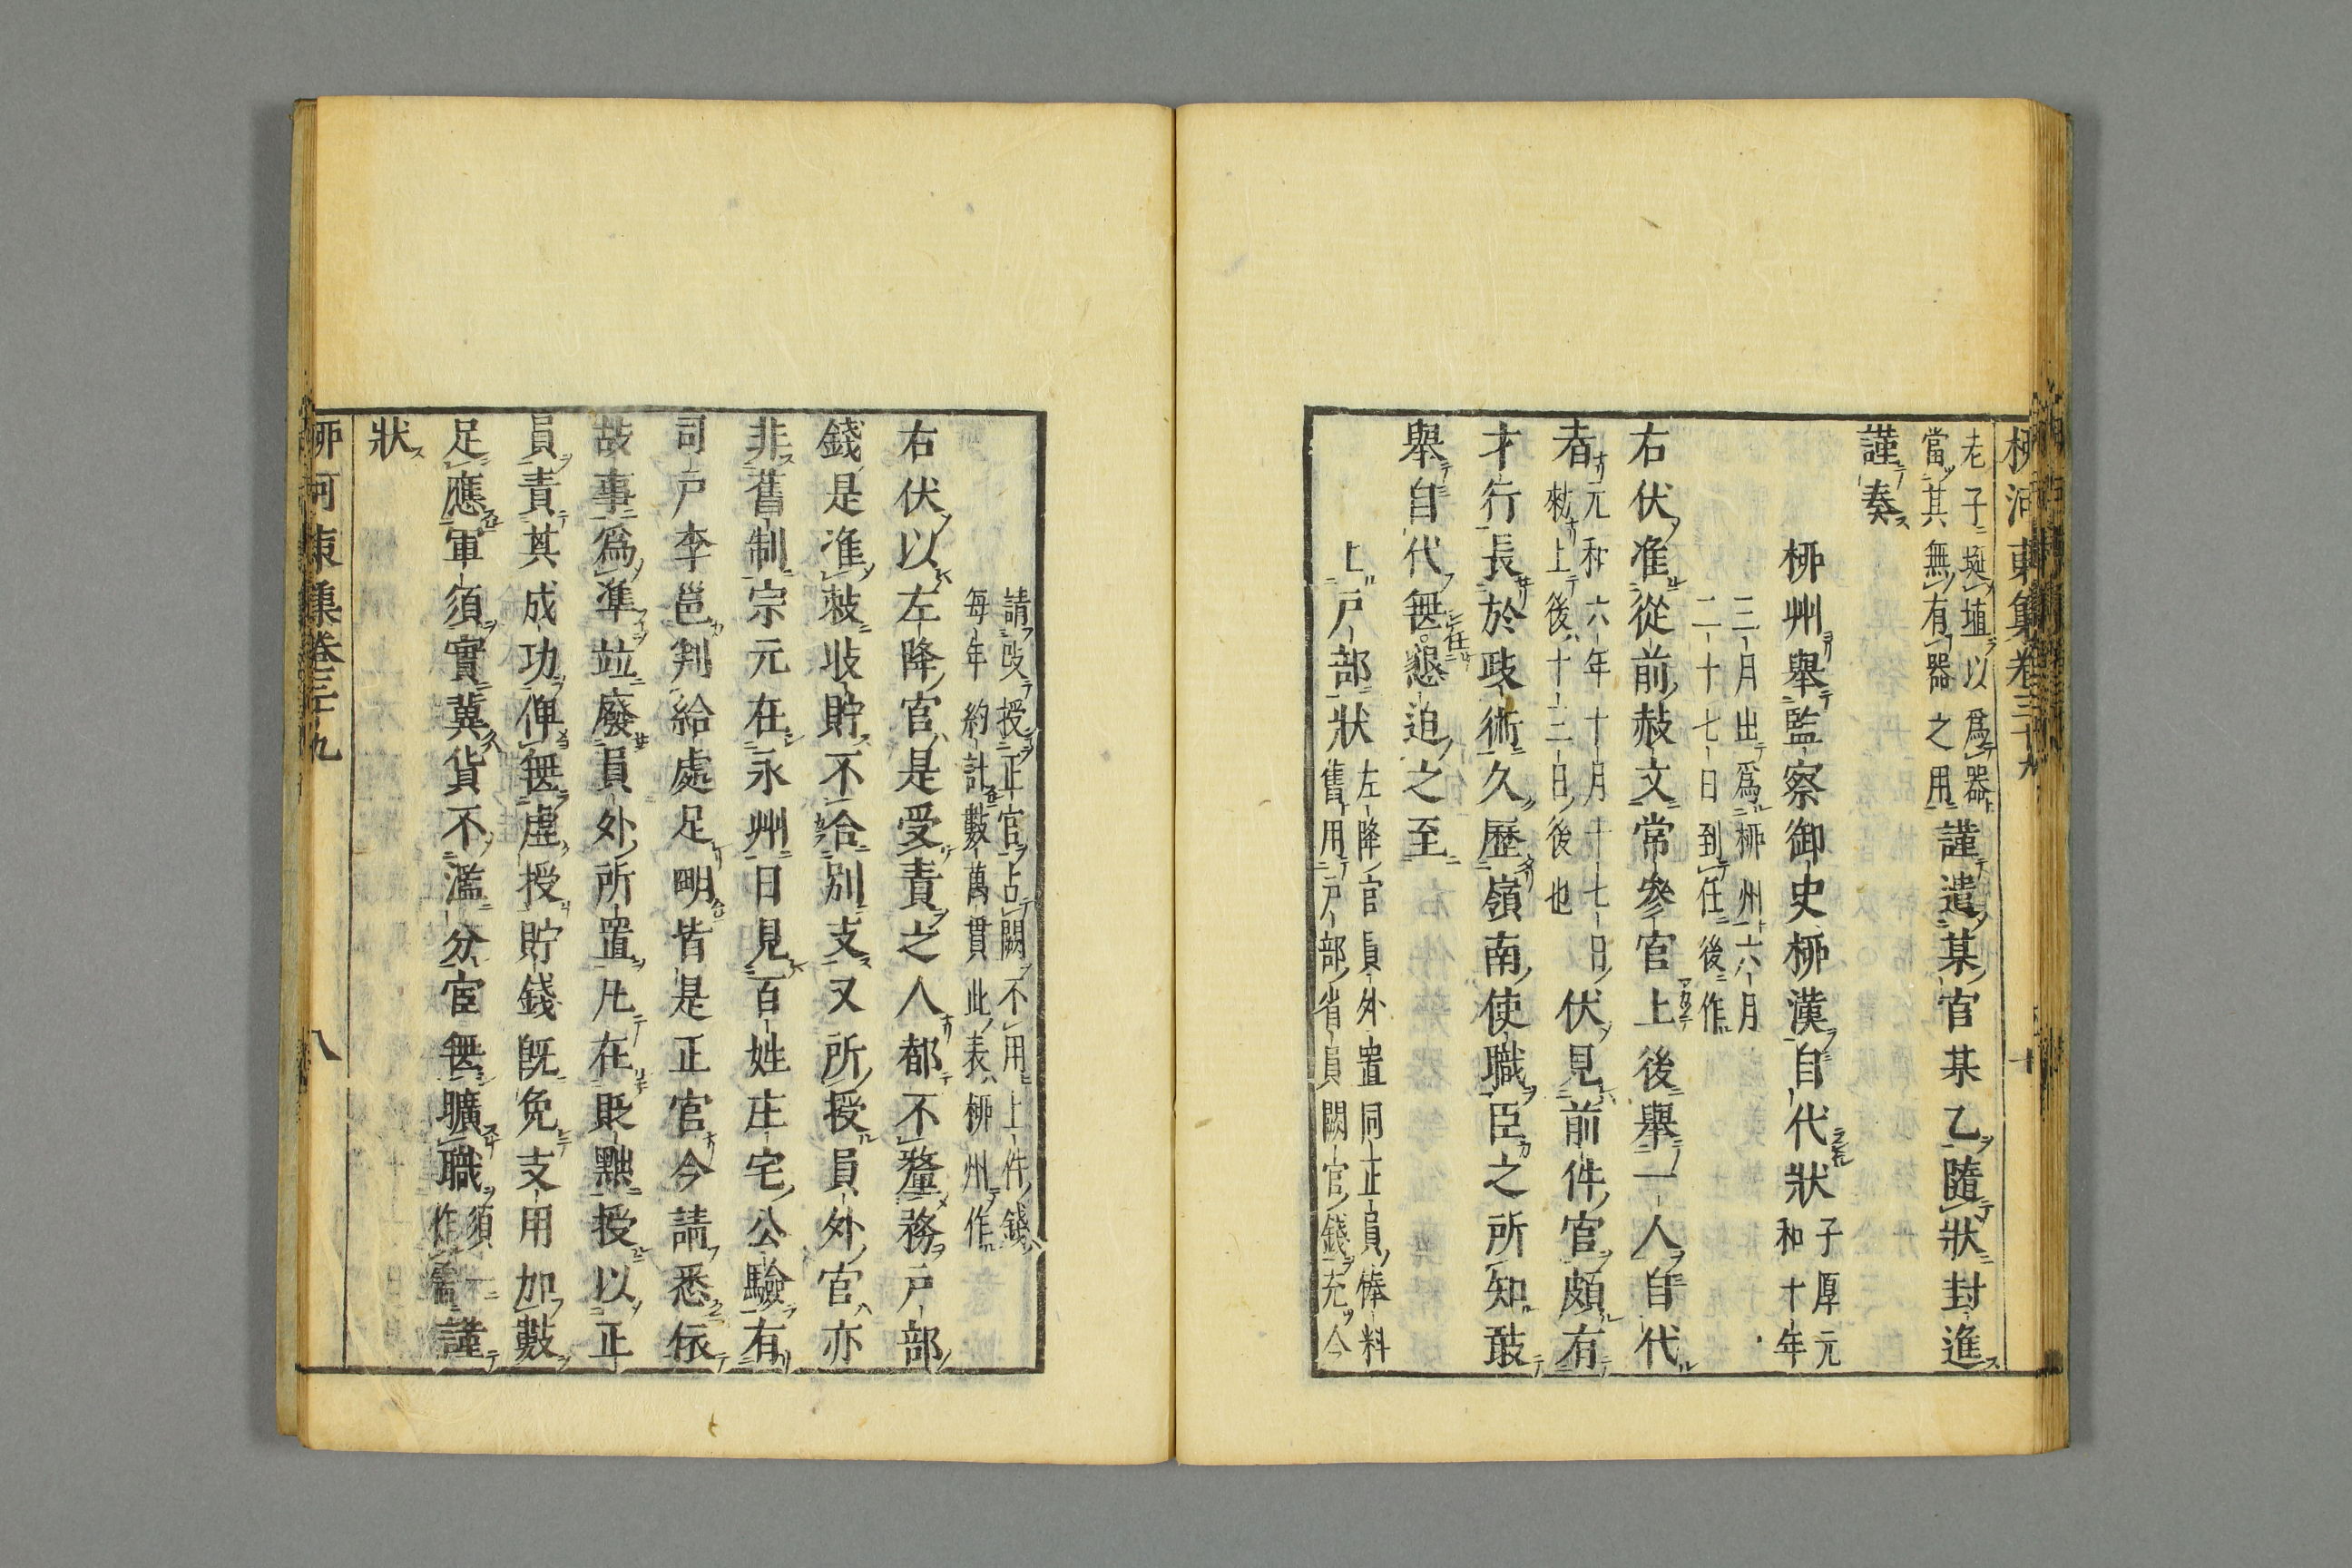 柳河東集卷三十九
老子埏埴以爲器
當其無有器之用謹遣某官某乙隨狀封進
謹奏
柳州舉監察御史柳漢自代狀子厚元
和十年
三月出爲柳州六月
二十七日到任後作
右伏准從前赦文常參官上後舉一人自代
者元和六年十月十七日
敕上後十二日後也伏見前件官頗有
才行長於政術久歷嶺南使職臣之所知敢
舉自代無任懇迫之至
上戶部狀左降官員外置同正員俸料
舊用戶部省員闕官錢充今
請改授正官占闕不用上件錢
每年約計數萬貫此表柳州作
右伏以左降官是受責之人都不釐務戶部
錢是准敕收貯不合別支又所授員外官亦
非舊制宗元在永州日見百姓庄宅公驗有
司戶李邕判給處足明皆是正官今請悉依
故事爲準並廢員外所置凡在貶黜授以正
員責其成功俾無虛授貯錢旣免支用加數
足應軍須實冀貨不濫分官無曠職須一
作需謹
狀
柳河東集卷三十九 八